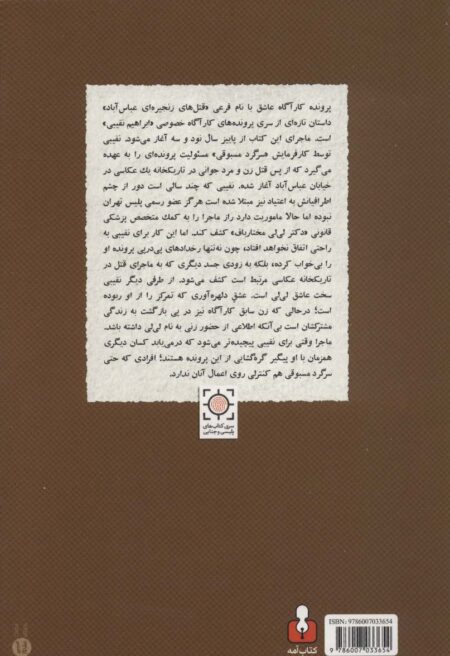 پرونده کارآگاه عاشق با نام فرعی «قتل‌های زنجیره‌ای عباس‌آباد»
داستان تازه‌ای از سری پرونده‌های کارآگاه خصوصی «ابراهیم نقیبی»
است. ماجرای این کتاب از پاییز سال نود و سه آغاز می‌شود، نقیبی
توسط کارفرمایش «سرگرد مسبوقی» مسئولیت پرونده‌ای را به عهده
می‌گیرد که از پس قتل زن و مرد جوانی در تاریکخانه یك عکاسی در
خیابان عباس‌آباد آغاز شده. نقیبی که چند سالی است دور از چشم
اطرافیانش به اعتیاد نیز مبتلا شده است هرگز عضو رسمی پلیس تهران
نبوده اما حالا ماموریت دارد راز ماجرا را به کمك متخصص پزشکی
قانونی «دکتر لی‌لی مختارباف» کشف کند. اما این کار برای نقیبی به
راحتی اتفاق نخواهد افتاد؛ چون نه‌تنها رخدادهای پی‌درپی پرونده او
را بی‌خواب کرده، بلکه به زودی جسد دیگری که به ماجرای قتل در
تاریکخانه عکاسی مرتبط است کشف می‌شود. از طرفی دیگر نقیبی
سخت عاشق لی‌لی است. عشقِ دلهره‌آوری که تمرکز را از او ربوده
است؛ درحالی که زن سابق کارآگاه نیز در پی بازگشت به زندگی
مشترکشان است بی‌آنکه اطلاعی از حضور زنی به نام لی‌لی داشته باشد.
ماجرا وقتی برای نقیبی پیچیده‌تر می‌شود که درمی‌یابد کسان دیگری
همزمان با او پیگیر گره‌گشایی از این پرونده هستند؛ افرادی که حتی
سرگرد مسبوقی هم کنترلی روی اعمال آنان ندارد.
سری کتاب‌های
پلیسی و جنایی
ISBN: 9786007033654
9 786007 033654
کتاب آمه